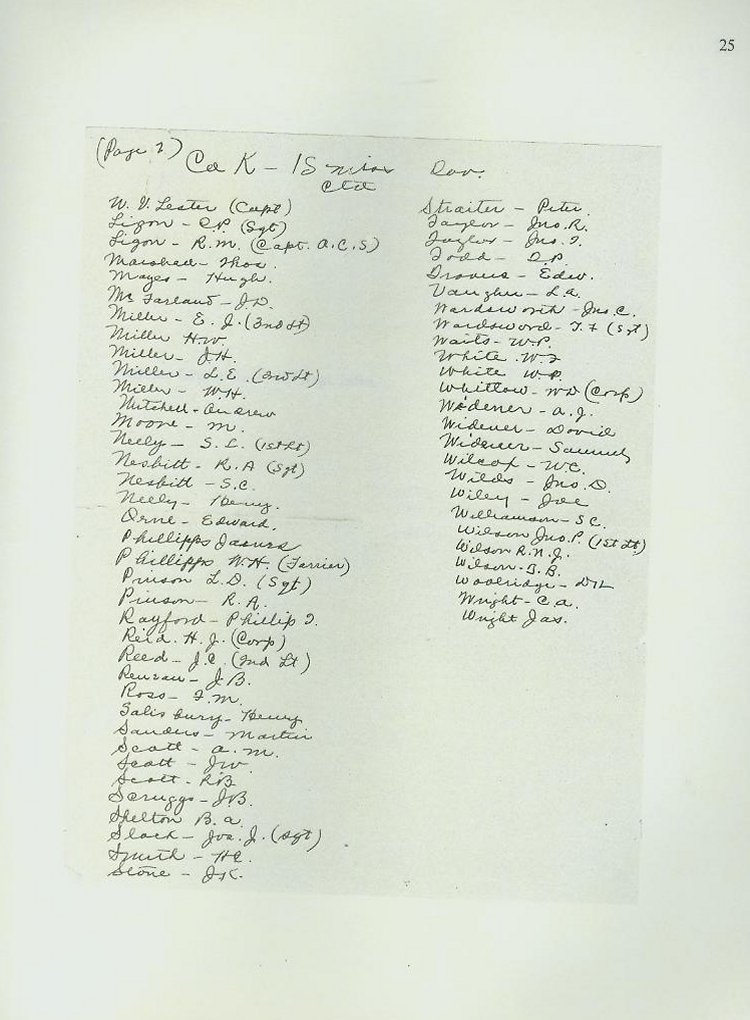 25
(Page 2) Co K - 15 Miss Cav.
Ctd
W. V. Lester (Capt)
Ligon - C.P. (Sgt)
Ligon - R.M. (Capt. A.C.S)
Marshall - Thos.
Mayes - Hugh.
Mc Farland - J.D.
Miller - E. J. (2nd Lt)
Miller H.W.
Miller - J.H.
Miller - L.E. (3rd Lt)
Miller - W.H.
Mitchell - Andrew
Moore - M.
Neely - S. L. (1st Lt)
Nesbitt - R.A (Sgt)
Nesbitt - S.C.
Neely - Henry.
Orne - Edward.
Phillipps James
Phillipps W.H. (Farrier)
Pinson L.D. (Sgt)
Pinson - R.A.
Rayford - Phillip T.
Reid. H.J. (Corp)
Reed - J.C. (2nd Lt)
Renzau - J.B.
Ross - F.M.
Salisbury - Henry
Sanders - Martin
Scott - A.M.
Scott - JW.
Scott - RB
Scruggs - J.B.
Shelton B.A.
Slack - J. (Sgt)
Smith - HC.
Stone - J.K.
Straiter - Peter.
Taylor - Jno. R.
Taylor - Jno. T.
Todd - D.P.
Travis - Edw.
Vaughn - L.A.
Wardsworth - Jno. C.
Wardsword - T.F (Sgt)
Waits - W.P.
White W.F
White W.P.
Whittow - WD (Corp)
Widener - A.J.
Widener - David
Widener - Samuel
Wilcox - WC.
Wilds - Jno. D.
Wiley - Joe
Williamson - S C.
Wilson Jno. P. (1st Lt)
Wilson R.N.J.
Wilson - B.B.
Woolridge -
Wright - C.A.
Wright Jas.